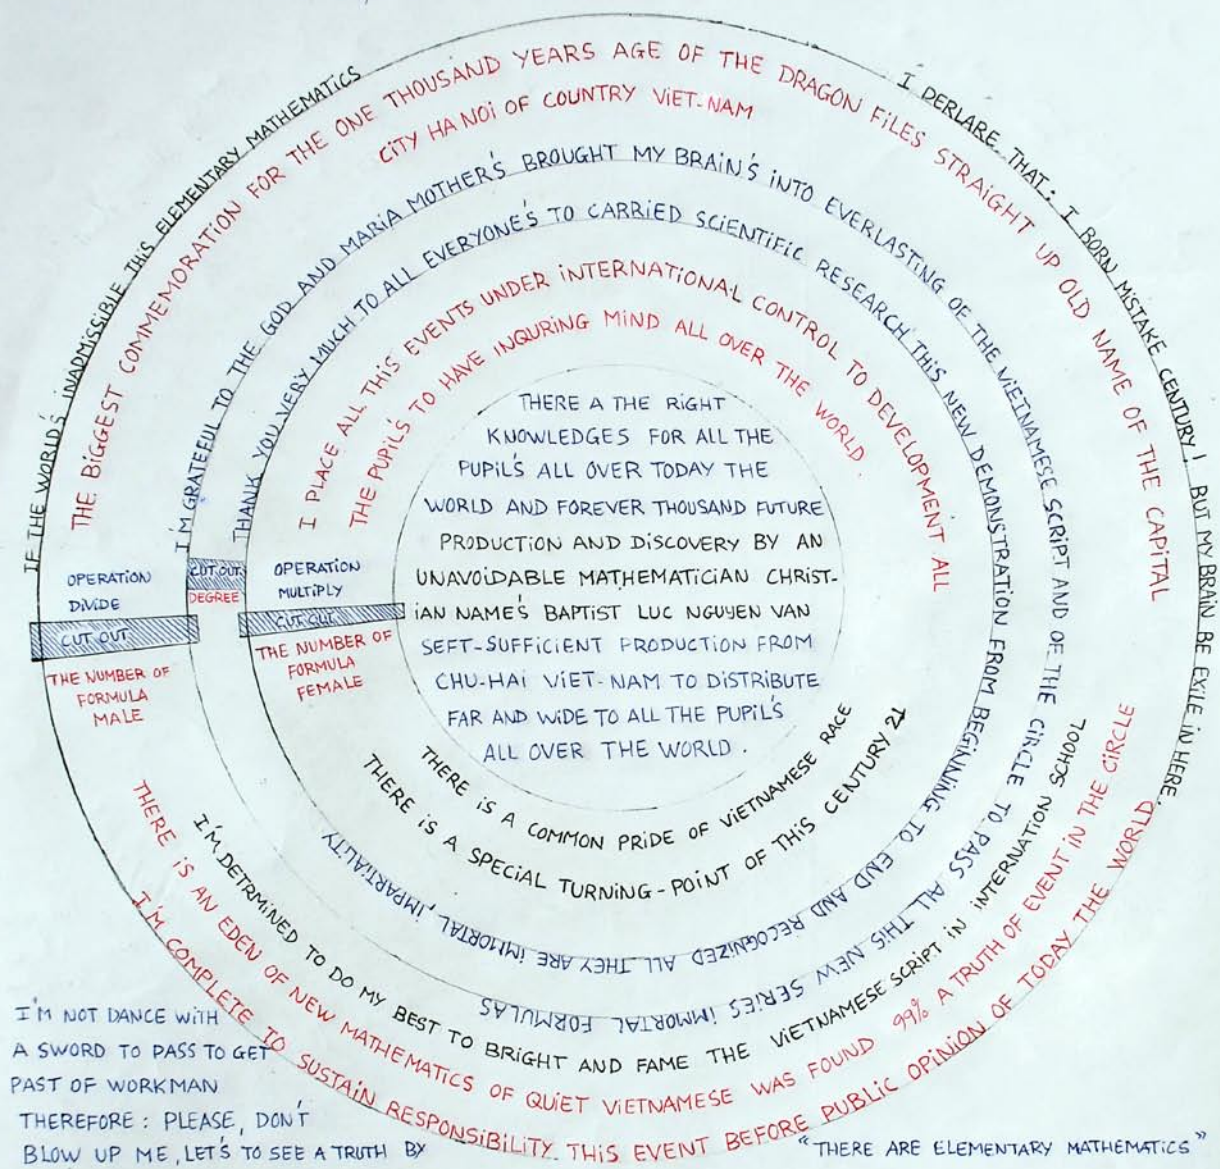 IF THE WORLD'S INADMISSIBLE THIS ELEMENTARY MATHEMATICS
I DERLARE THAT: I BORN MISTAKE CENTURY! BUT MY BRAIN BE EXILE IN HERE.
THE BIGGEST COMMEMORATION FOR THE ONE THOUSAND YEARS AGE OF THE DRAGON FILES STRAIGHT UP OLD NAME OF THE CAPITAL
CITY HA NOI OF COUNTRY VIET-NAM
I'M GRATEFUL TO THE GOD AND MARIA MOTHER'S BROUGHT MY BRAIN'S INTO EVERLASTING OF THE VIETNAMESE SCRIPT AND OF THE CIRCLE TO PASS ALL THIS NEW SERIES IMMORTAL FORMULAS
THANK YOU VERY MUCH TO ALL EVERYONE'S TO CARRIED SCIENTIFIC RESEARCH THIS NEW DEMONSTRATION FROM BEGINNING TO END AND RECOGNIZED ALL THEY ARE IMMORTAL, IMPARTIALITY
I PLACE ALL THIS EVENTS UNDER INTERNATIONAL CONTROL TO DEVELOPMENT ALL
THE PUPIL'S TO HAVE INQURING MIND ALL OVER THE WORLD
THERE A THE RIGHT
KNOWLEDGES FOR ALL THE
PUPIL'S ALL OVER TODAY THE
WORLD AND FOREVER THOUSAND FUTURE
PRODUCTION AND DISCOVERY BY AN
UNAVOIDABLE MATHEMATICIAN CHRIST-
IAN NAME'S BAPTIST LUC NGUYEN VAN
SEFT-SUFFICIENT PRODUCTION FROM
CHU-HAI VIET-NAM TO DISTRIBUTE
FAR AND WIDE TO ALL THE PUPIL'S
ALL OVER THE WORLD.
OPERATION
DIVIDE
CUT OUT
THE NUMBER OF
FORMULA
MALE
CUT OUT
DEGREE
OPERATION
MULTIPLY
CUT OUT
THE NUMBER OF
FORMULA
FEMALE
THERE IS A COMMON PRIDE OF VIETNAMESE RACE
THERE IS A SPECIAL TURNING-POINT OF THIS CENTURY 21
I'M DETRMINED TO DO MY BEST TO BRIGHT AND FAME THE VIETNAMESE SCRIPT IN INTERNATION SCHOOL
THERE IS AN EDEN OF NEW MATHEMATICS OF QUIET VIETNAMESE WAS FOUND 99% A TRUTH OF EVENT IN THE CIRCLE
I'M COMPLETE TO SUSTAIN RESPONSIBILITY THIS EVENT BEFORE PUBLIC OPINION OF TODAY THE WORLD
I'M NOT DANCE WITH
A SWORD TO PASS TO GET
PAST OF WORKMAN
THEREFORE: PLEASE, DON'T
BLOW UP ME, LET'S TO SEE A TRUTH BY
"THERE ARE ELEMENTARY MATHEMATICS"